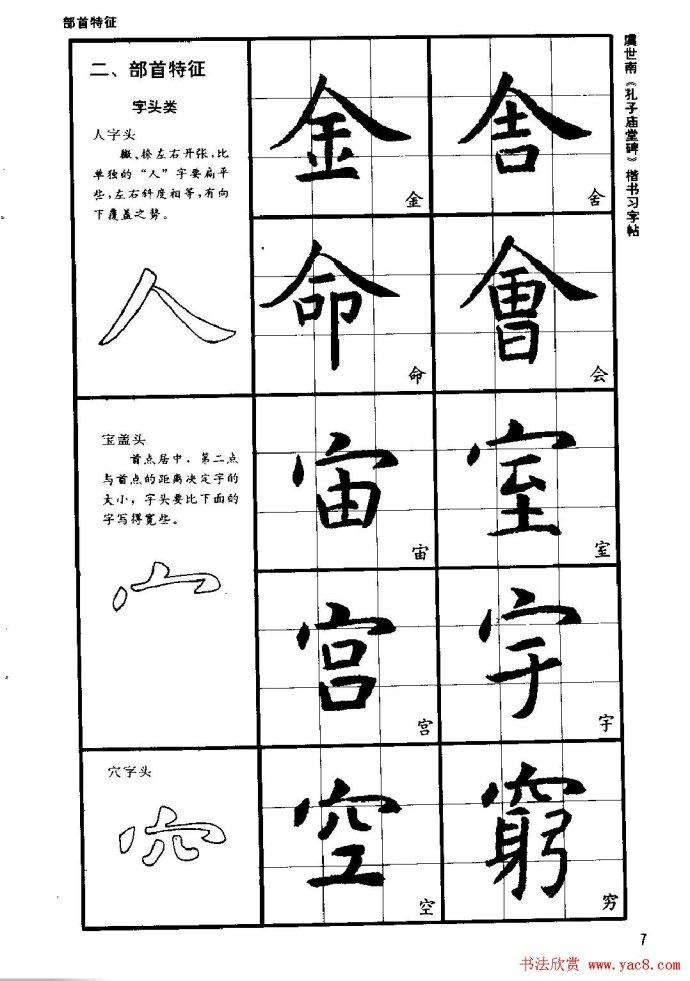 部首特征
虞世南《孔子庙堂碑》楷书习字帖
二、部首特征
字头类
人字头
撇、捺左右开张，比
单独的“人”字要扁平
些，左右斜度相等，有向
下覆盖之势。
人
金
金
舍
舍
命
命
會
会
宝盖头
首点居中，第二点
与首点的距离决定字的
大小，字头要比下面的
字写得宽些。
宀
宙
宙
室
室
宫
宫
宇
宇
穴字头
空
空
窮
穷
7
书法欣赏 www.yac8.com